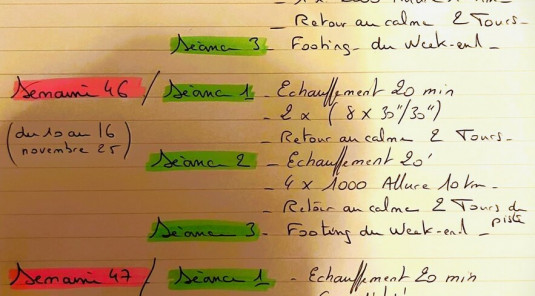 - Retour au calme 2 Tours -
Séance 3 - Footing du Week-end -
Semaine 46 / Séance 1 - Echauffement 20 min
- 2 x (8 x 30"/30")
(du 10 au 16 novembre 25)
- Retour au calme 2 Tours -
Séance 2 - Echauffement 20'
- 4 x 1000 Allure 10 km -
- Retour au calme 2 Tours de piste
Séance 3 - Footing du Week-end -
Semaine 47 / Séance 1 - Echauffement 20 min